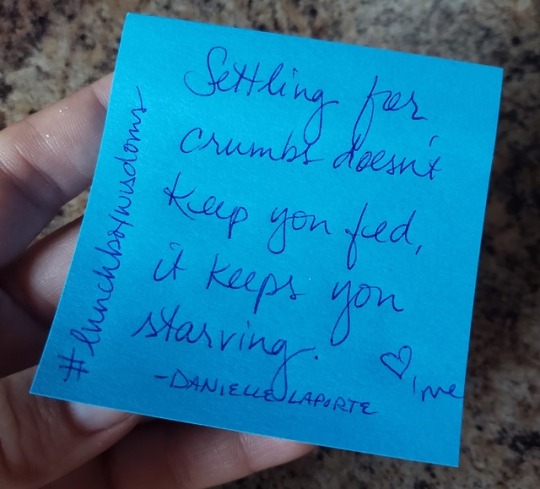 Settling for
crumbs doesn't
keep you fed,
it keeps you
starving.
-DANIELLE LAPORTE
♡, me
#lunchboxwisdoms